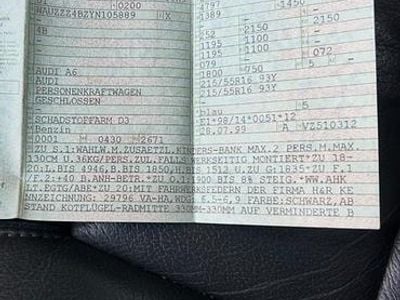 0200
WAUZZZ4BZYN105889 X
4B
AUDI A6
AUDI
PERSONENKRAFTWAGEN
GESCHLOSSEN
SCHADSTOFARM D3
Benzin
0001 0430 2671
4797 1450
2150
52 2150
1195 1100
1195 1100
5 072
1800 750 5
215/55R16 93Y
215/55R16 93Y
blau 5
E1*98/14*0051*12
28.07.99 A VZ510312
ZU S.1:WAHLW.M.ZUSAETZL.KINDERS-BANK MAX.2 PERS.M.MAX.
130CM U.36KG/PERS.ZUL.FALLS WERKSEITIG MONTIERT*ZU 18-
20:L.BIS 4946,B.BIS 1850,H.BIS 1512 U.ZU G:1835*ZU F.1
/F.2:+40 B.ANH-BETR.*ZU O.1:1900 BIS 8% STEIG.*WW.AHK
LT.EGTG/ABE*ZU 20:MIT FAHRWERKSFEDERN DER FIRMA H&R KE
NNZEICHNUNG: 29796 VA-HA,WDG: 6.5-6,9 FARBE:SCHWARZ,AB
STAND KOTFLÜGEL-RADMITTE 330MM-330MM AUF VERMINDERTE B